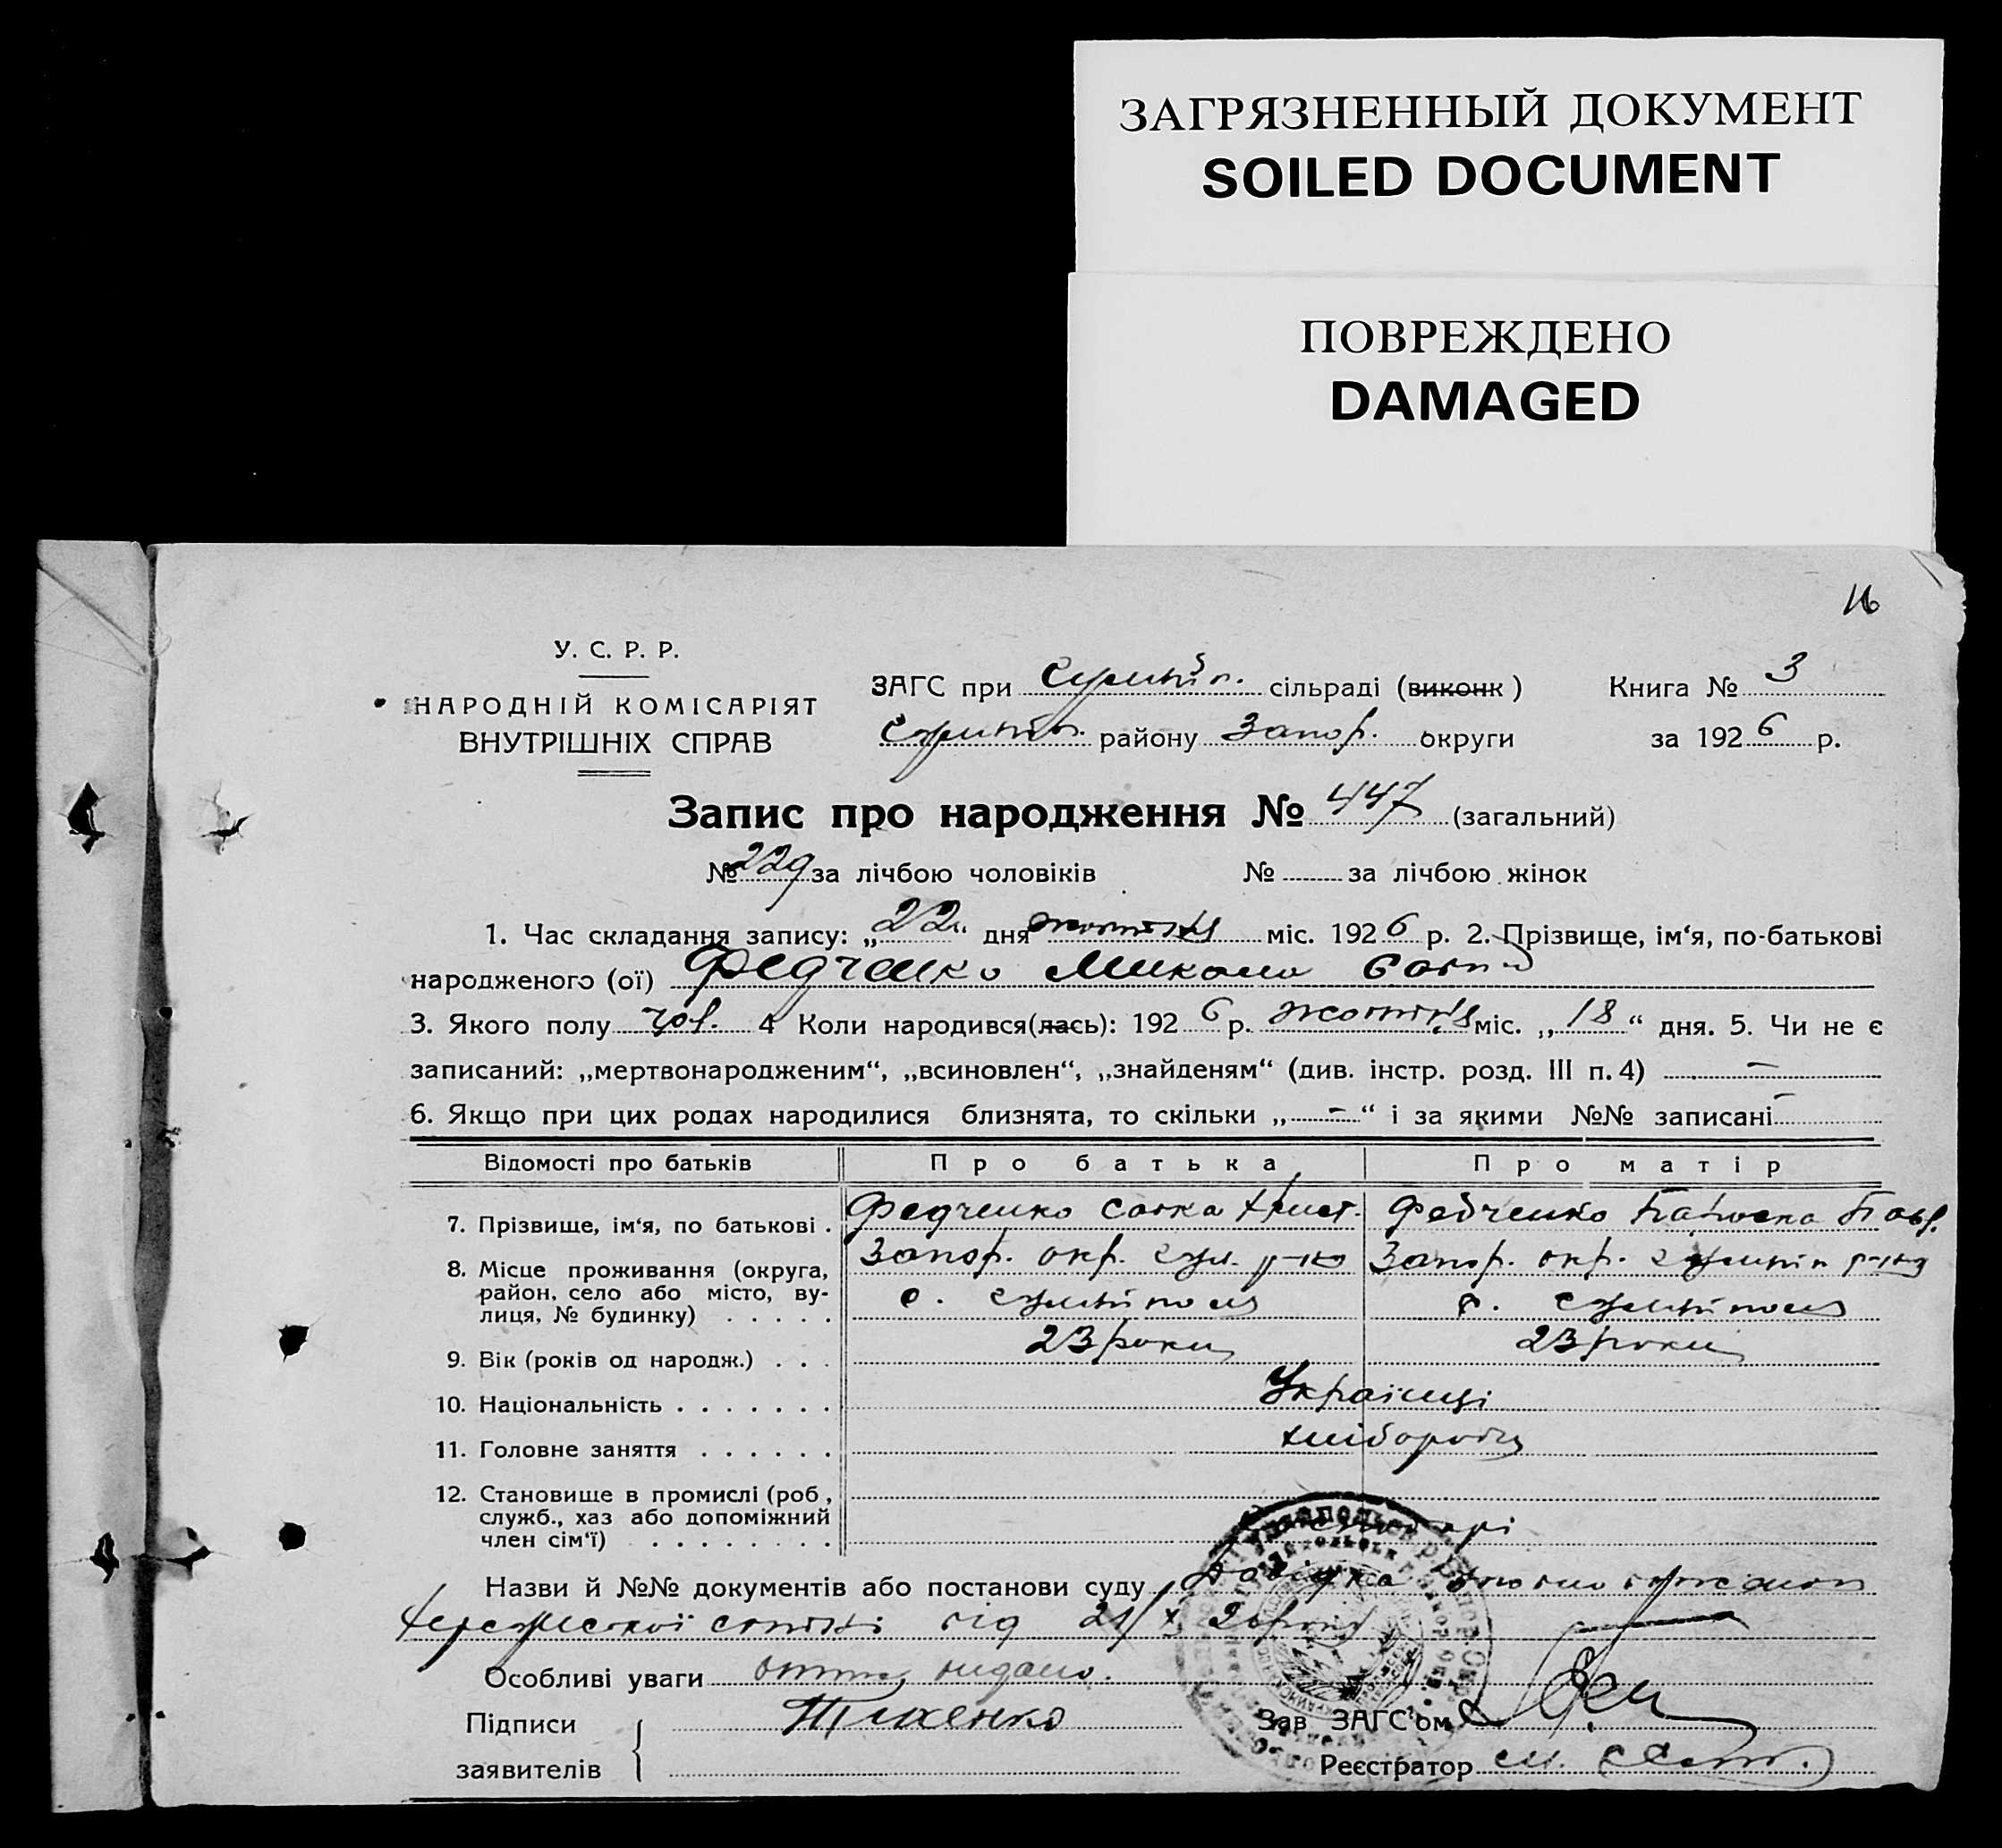 ЗАГРЯЗНЕННЫЙ ДОКУМЕНТ
SOILED DOCUMENT
ПОВРЕЖДЕНО
DAMAGED
16
У. С. Р. Р.
НАРОДНІЙ КОМІСАРІЯТ
ВНУТРІШНІХ СПРАВ
ЗАГС при сільраді (виконк) Книга № 3
району Запор. округи за 1926 р.
Запис про народження № 447 (загальний)
№ 229 за лічбою чоловіків № за лічбою жінок
1. Час складання запису: „22“ дня жовтня міс. 1926 р. 2. Прізвище, ім‘я, по-батькові
народженого (ої) Федченко Микола
3. Якого полу чол. 4 Коли народився(лась): 1926 р. жовтня міс. „18“ дня. 5. Чи не є
записаний: „мертвонародженим“, „всиновлен“, „знайденям“ (див. інстр. розд. III п. 4) —
6. Якщо при цих родах народилися близнята, то скільки „-“ і за якими №№ записані -
Відомості про батьків Про батька Про матір
7. Прізвище, ім‘я, по батькові . Федченко Савка Христ. Федченко Павл.
8. Місце проживання (округа, район, село або місто, вулиця, № будинку) . . . . . Запор. окр. Запор. окр.
с. с.
9. Вік (років од народж.) . . . 23 роки 23 роки
10. Національність . . . . . . . Українці
11. Головне заняття . . . . . . хлібороби
12. Становище в промислі (роб, служб., хаз або допоміжний член сім‘ї) . . . . . . . .
Назви й №№ документів або постанови суду Довідка
від 21/X
Особливі уваги видано.
Підписи
заявителів
Зав ЗАГС‘ом
Реєстратор